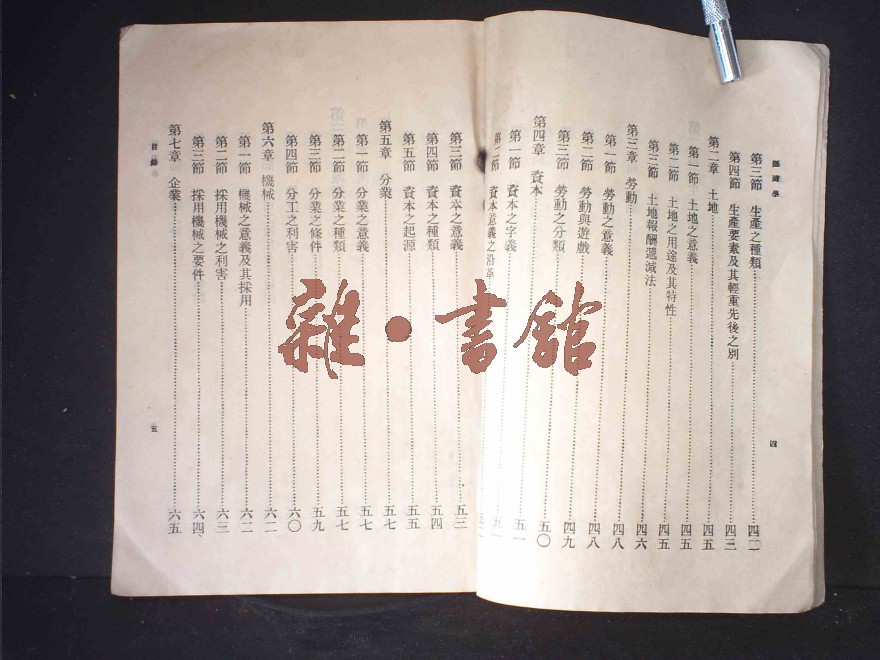 經濟學
第三節 生產之種類……四二
第四節 生產要素及其輕重先後之別……四三
第二章 土地……四五
第一節 土地之意義……四五
第二節 土地之用途及其特性……四五
第三節 土地報酬遞減法……四六
第三章 勞動……四八
第一節 勞動之意義……四八
第二節 勞動與遊戲……四八
第三節 勞動之分類……四九
第四章 資本……五〇
第一節 資本之字義……五一
第二節 資本意義之沿革……五一
四
第三節 資本之意義……五三
第四節 資本之種類……五四
第五節 資本之起源……五五
第五章 分業……五七
第一節 分業之意義……五七
第二節 分業之種類……五七
第三節 分業之條件……五九
第四節 分工之利害……六〇
第六章 機械……六二
第一節 機械之意義及其採用……六二
第二節 採用機械之利害……六三
第三節 採用機械之要件……六四
第七章 企業……六五
目錄
五
雜·書館